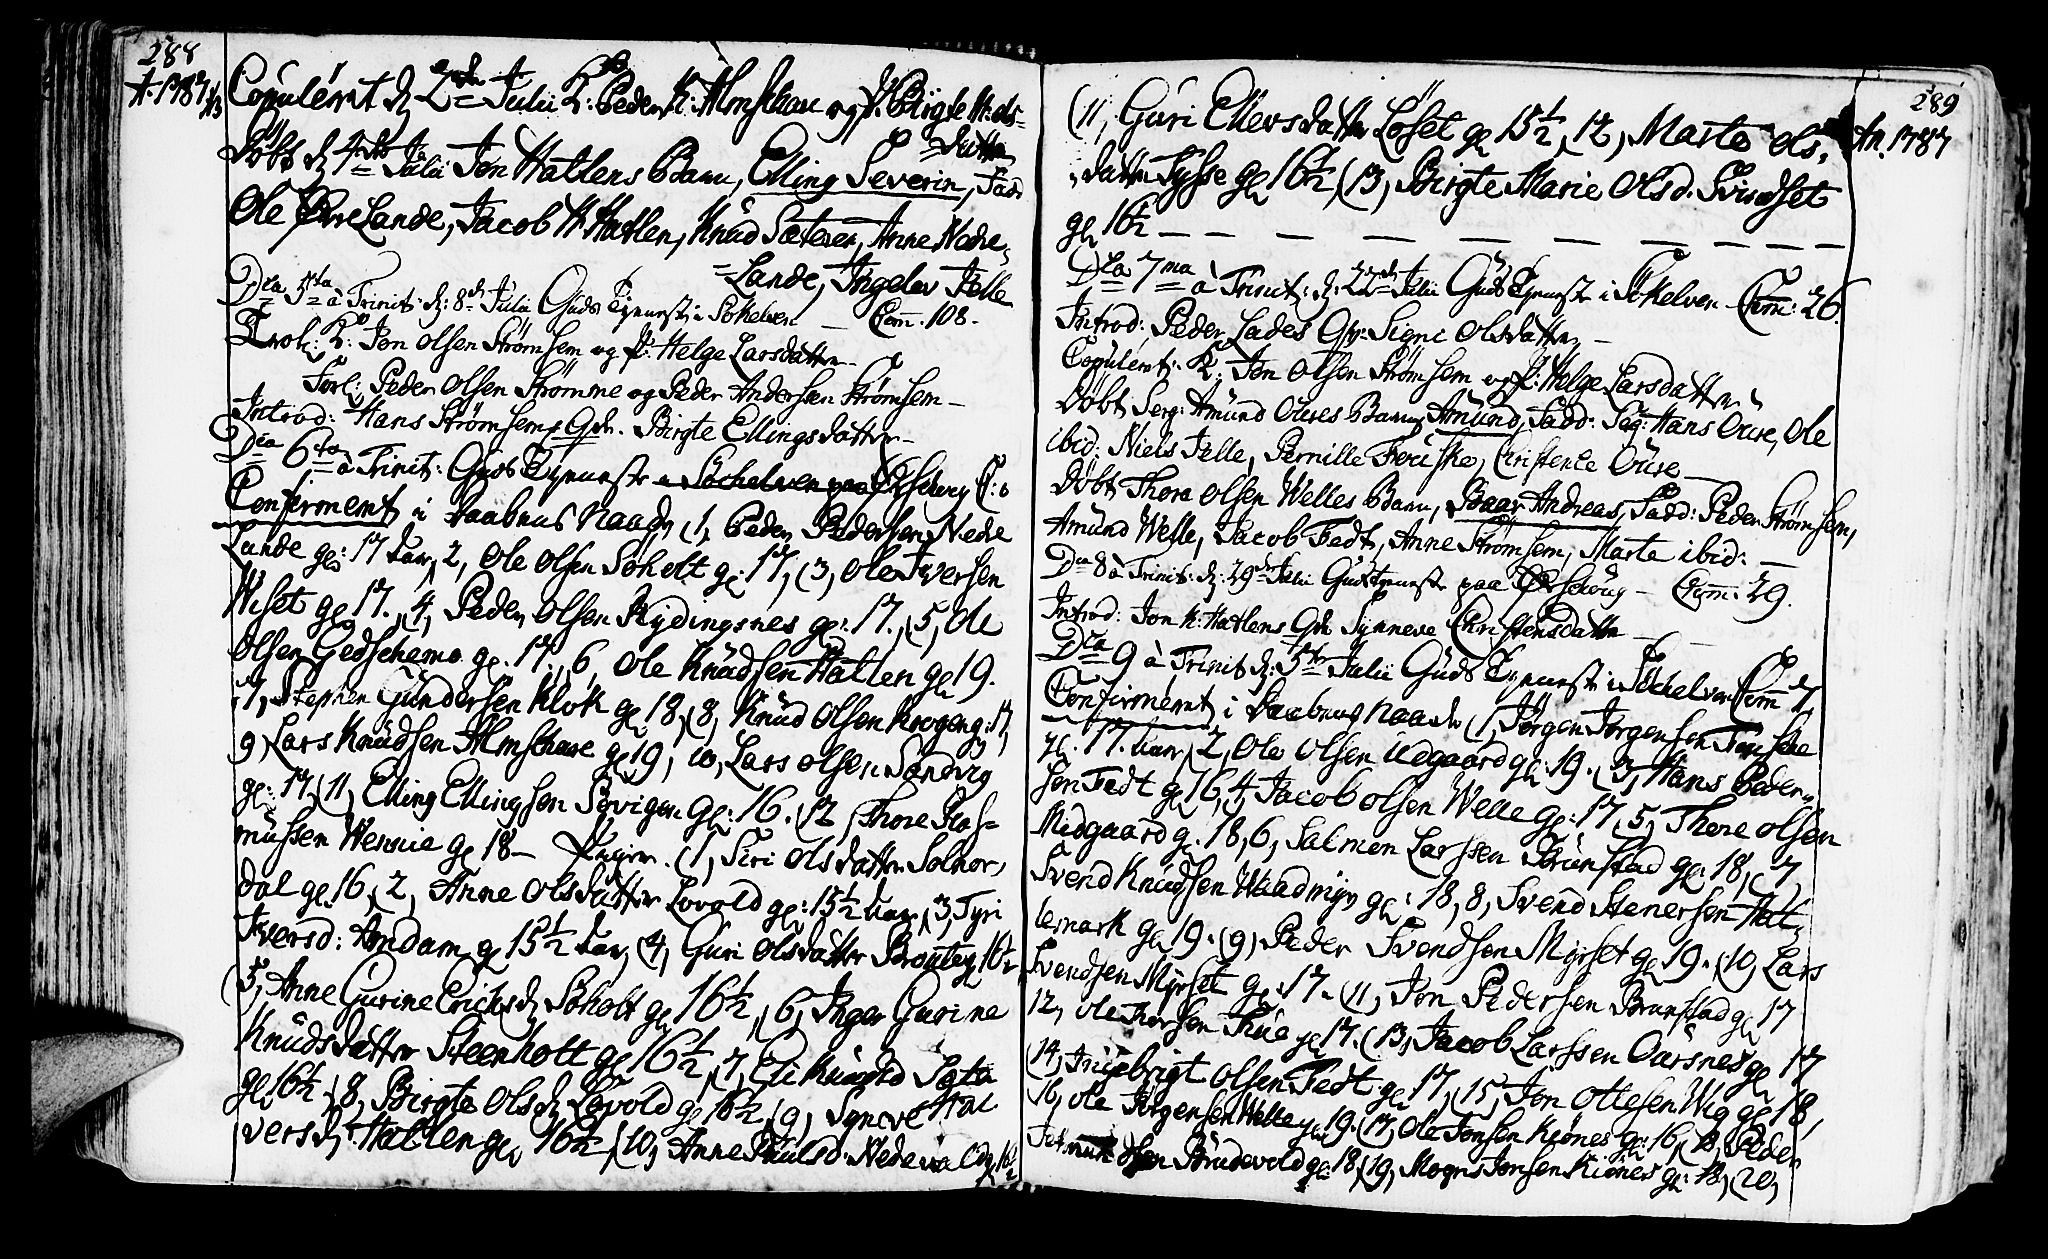 288
A. 1787
Copulerit d 2den Julii K: Peder K: Almschare og P. Birgte K: ols=
=datter
Döbt d 4de Julii Jon Hatlens Barn, Elling Severin, Fadd
Ole Øvre Lande, Jacob K Hatlen, Knud Sæteren, Anne Nedre=
=Lande, Ingeler Jelle
Dca 5ta à Trinit: d: 8de Julii Guds Tjeneste i Søkelven — Com: 108.
Trol: K: Jon Olsen Strømsem og P: Helge Larsdatter
Forl: Peder Olsen Strømme og Peder Andersen Strømsem —
Introd: Hans Strømsems Qde. Birgte Ellingsdatter —
Dca 6ta à Trinit: Guds Tjeneste
Confirmerit i Daabens Naade (1, Peder Pedersen Nedre
Lande gl: 17 aar, 2, Ole Olsen Søholt gl: 17, (3, Ole Iversen
Viset gl 17. (4, Peder Olsen Rydingsnes gl: 17. (5, Ole
Olsen Gedschemo gl. 17., 6, Ole Knudsen Hatlen gl 19.
7, Stephen Gundersen Klok gl 18, (8, Knud Olsen Krogen g: 17,
9, Lars Knudsen Almschare gl 19, 10, Lars Olsen Sandvig
gl: 17. (11, Elling Ellingsen Søvigen gl: 16. (12, Thore Ras=
mussen Wennie gl 18 — Piger. (1, Siri Olsdatter Solnor=
dal gl 16, 2, Anne Olsdatter Lovold gl: 15½ aar, (3, Tyri
Iversd: Amdam gl 15½ aar, (4, Guri Olsdatter Brauteg 16½
5, Anne Gurine Erichsd Søholt gl 16½, (6, Inger Gurine
Knudsdatter Steenholt gl 16½, (7, Eli Knudsd Sætre
gl 16½ (8, Birgte Olsd Løvold gl 16½ (9, Syneve Hal
versd: Hatlen gl 16½ (10, Anne Paulsd. Nedrevold 16½
289
An. 1787
(11, Guri Ellersdatter Løset gl 15½, 12, Marte Ols=
=datter Tysse gl 16½, (13, Birgte Marie Olsd. Svindset
gl 16½ — — — — — — — —
Dca 7ma à Trinit: d: 22de Julii Guds Tjeneste i Søkelven — Com: 26.
Introd: Peder Lades Qv: Signi Olsdatter —
Copulerit: K: Jon Olsen Strømsem og P: Helge Larsdatter
Döbt Serg: Amund Oures Barn Amund, Fadd: Serg: Hans Oure, Ole
ibid: Niels Jelle, Pernille Feuske, Christence Oure —
Döbt Thore Olsen Welles Barn, Baar Andreas, Fadd: Peder Strømsem,
Amund Welle, Jacob Tedt, Anne Strømsem, Marte ibid: —
Dca 8 à Trinit: d: 29de Julii Guds Tjeneste paa Ørschoug — Com: 29.
Introd: Jon K: Hatlens Qde Synneve Christensdatter —
Dca 9 à Trinit d: 5te Julii Guds Tjeneste i Søchelven Com
Confirmerit i Daabens Naade (1, Jørgen Jørgensen Feuske
gl. 17. aar, 2, Ole Olsen Uegaard gl: 19. (3, Hans Peder=
sen Tedt gl 16, 4, Jacob Olsen Welle gl: 17. 5, Thore Olsen
Midgaard g. 18, 6, Salmon Larssen Brunstad gl: 18, (7,
Svend Knudsen Waadmyr gl: 18, 8, Svend Stenersen Hat=
lemark gl 19. (9, Peder Svendsen Myrset gl 19. (10, Lars
Svendsen Myrset gl 17. (11, Jon Pedersen Brunstad gl 17
12, Ole Iversen Thue gl 17. (13, Jacob Larssen Oursnes gl 17
(14, Ingebrigt Olsen Tedt gl 17, (15, Jon Ottesen Wig gl 18,
16, Ole Jørgensen Welle gl 19. (17, Ole Jonsen Kiønes gl: 16, (18, Peder
Brudevold gl 18, (19, Mogns Jonsen Kiønes gl: 18, (20,